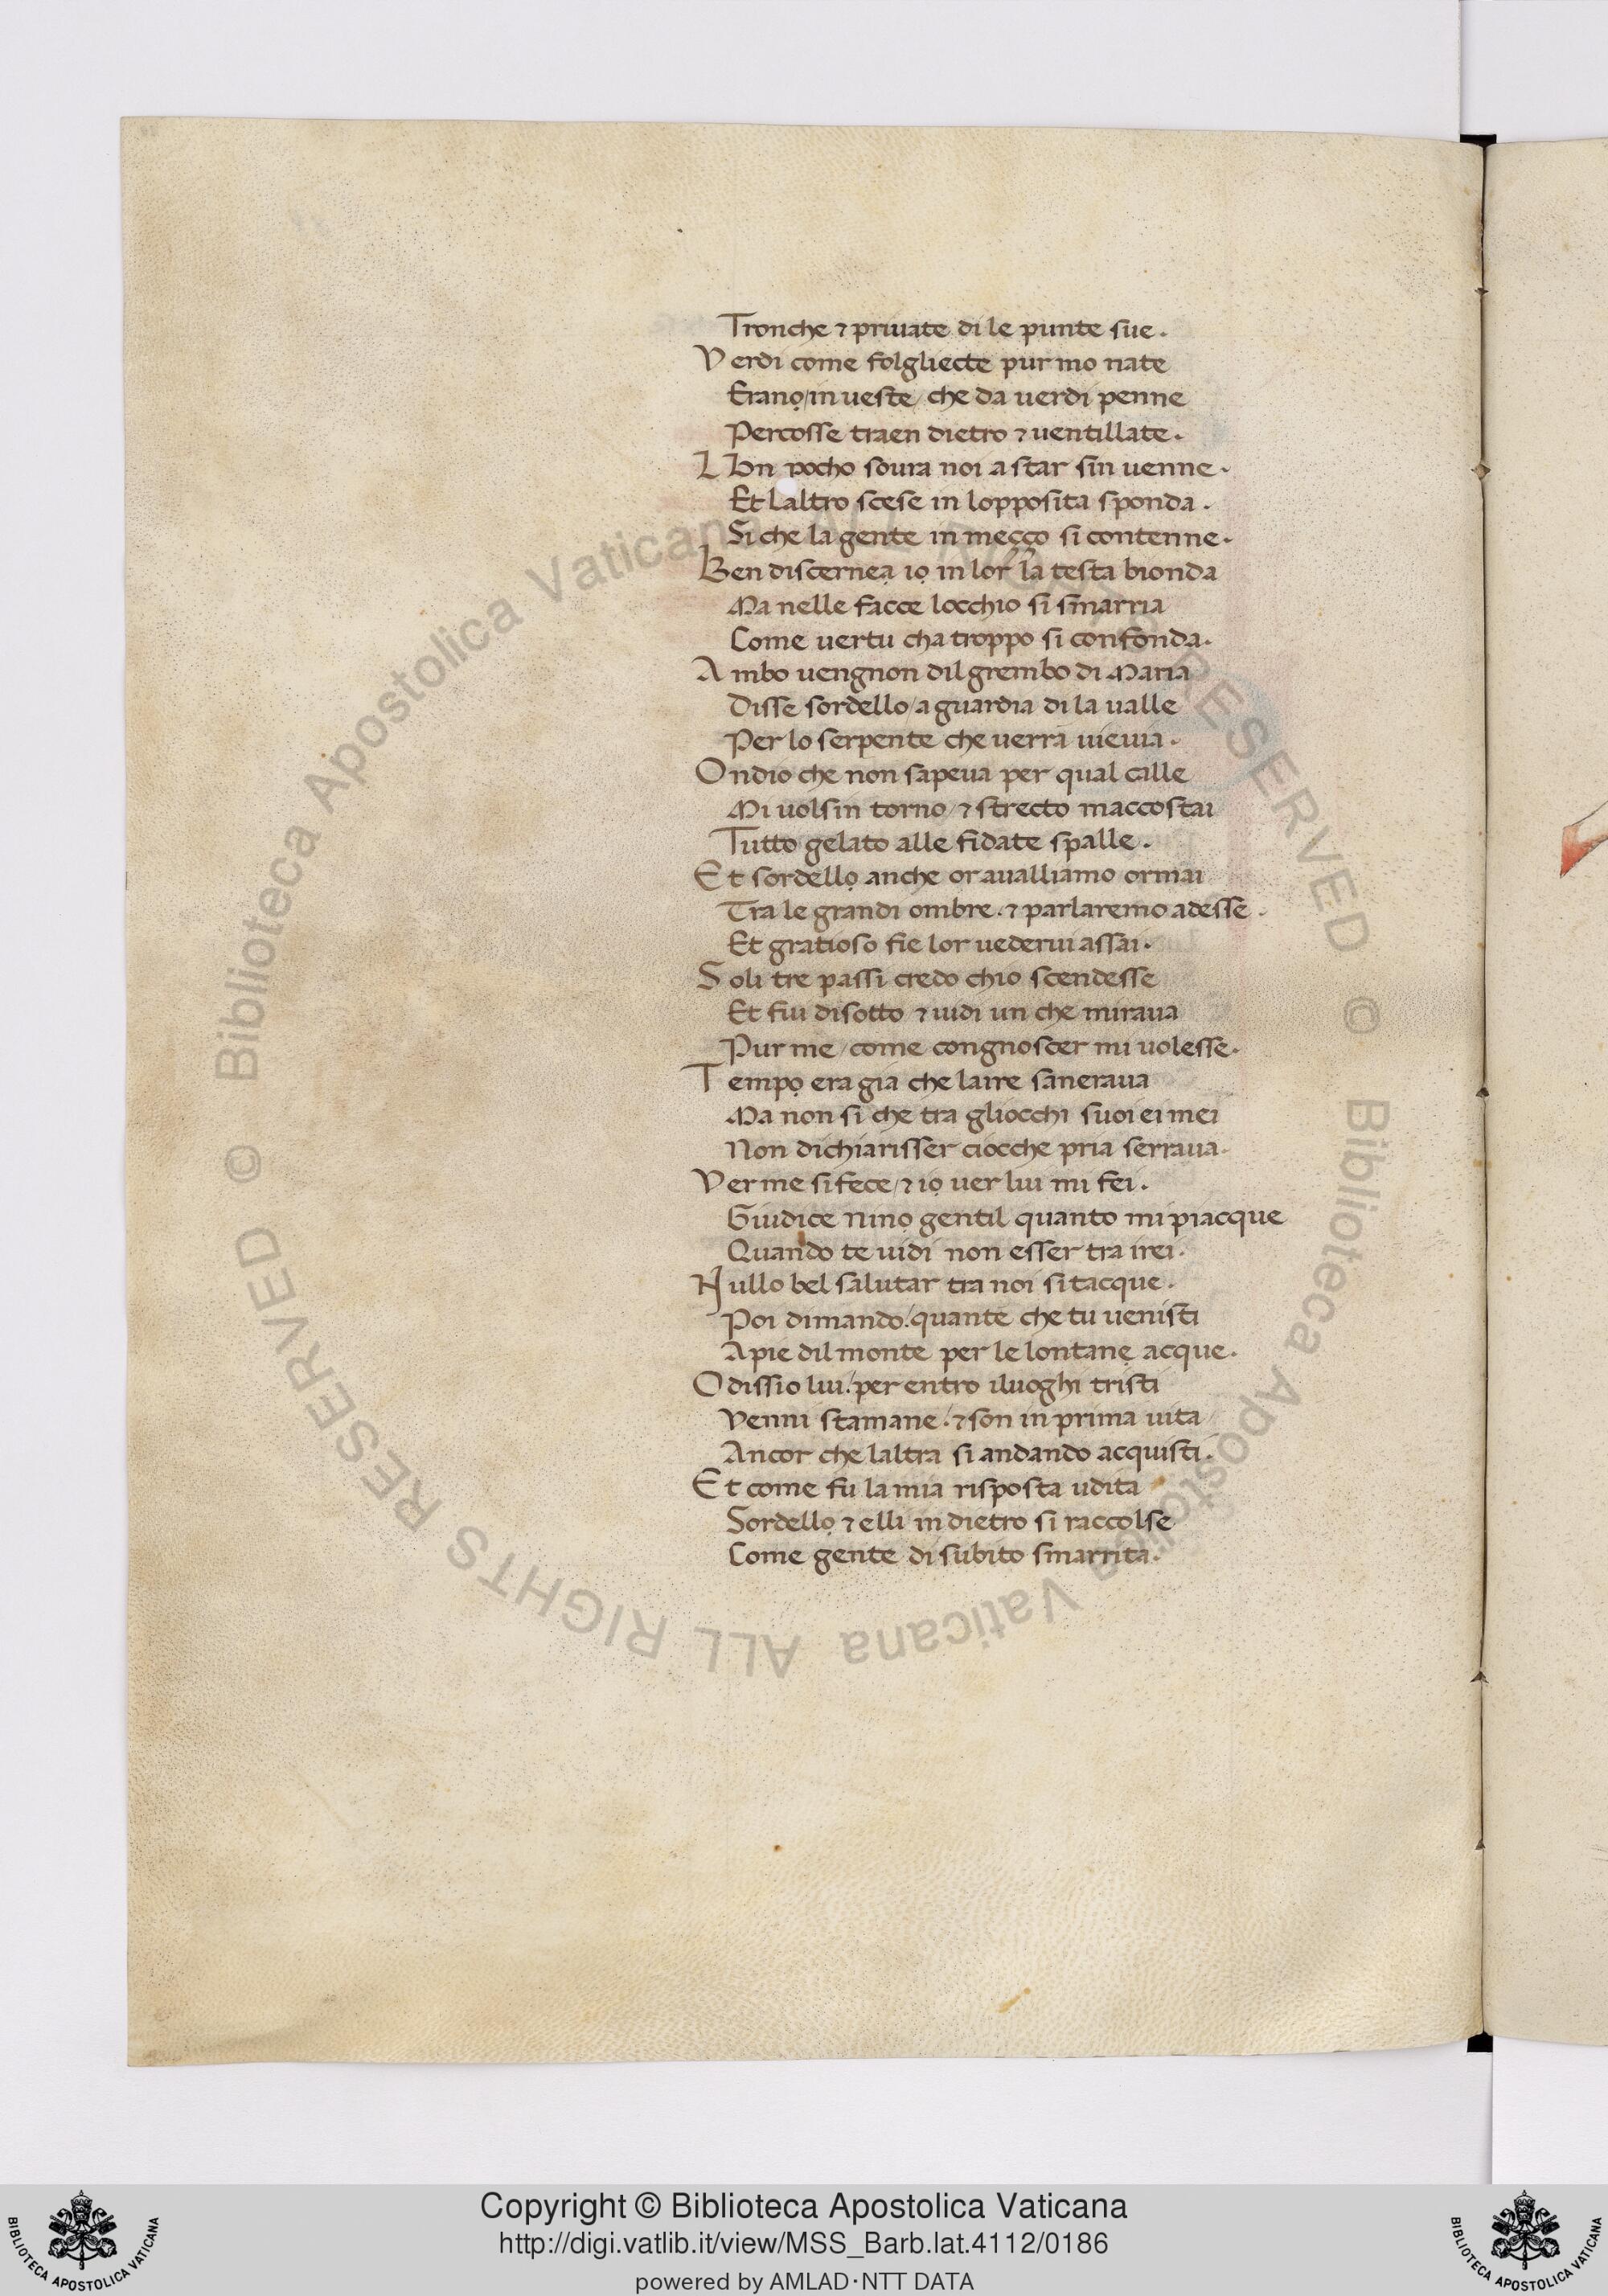 Tronche ⁊ priuate di le punte sue.
Verdi come folgliecte pur mo nate
Erano/in ueste/che da uerdi penne
Percosse traen dietro ⁊ uentillate.
LUn pocho soura noi a star sin uenne.
Et laltro scese in lopposita sponda.
Si che la gente in meçço si contenne.
Ben discernea io in lor la testa bionda
Ma nelle facce locchio si smarria
Come uertu cha troppo si confonda.
Ambo uengnon dil grembo di Maria
Disse sordello/a guardia di la ualle
Per lo serpente che uerra uieuia.
Ondio che non sapeua per qual calle
Mi uolsin torno/⁊ strecto maccostai
Tutto gelato alle fidate spalle.
Et sordello anche or aualliamo ormai
Tra le grandi ombre.⁊ parlaremo adesse.
Et gratioso fie lor uederui assai.
Soli tre passi credo chio scendesse
Et fui disotto ⁊ uidi un che miraua
Pur me/come congnoscer mi uolesse.
Tempo era gia che laire saneraua
Ma non si che tra gliocchi suoi ei mei
Non dichiarisser ciocche pria serraua.
Ver me si fece/⁊ io uer lui mi fei.
Giudice nino gentil quanto mi piacque
Quando te uidi non esser tra irei.
Nullo bel salutar tra noi si tacque.
Poi dimando./quante che tu uenisti
Apie dil monte per le lontane acque.
Odissio lui./per entro iluoghi tristi
Venni stamane.⁊ son in prima uita
Ancor che laltra si andando acquisti.
Et come fu la mia risposta udita
Sordello ⁊ elli in dietro si raccolse
Come gente di subito smarrita.
© Biblioteca Apostolica Vaticana ALL RIGHTS RESERVED © Biblioteca Apostolica Vaticana ALL RIGHTS RESERVED
Copyright © Biblioteca Apostolica Vaticana
http://digi.vatlib.it/view/MSS_Barb.lat.4112/0186
powered by AMLAD·NTT DATA
BIBLIOTECA APOSTOLICA VATICANA
BIBLIOTECA APOSTOLICA VATICANA